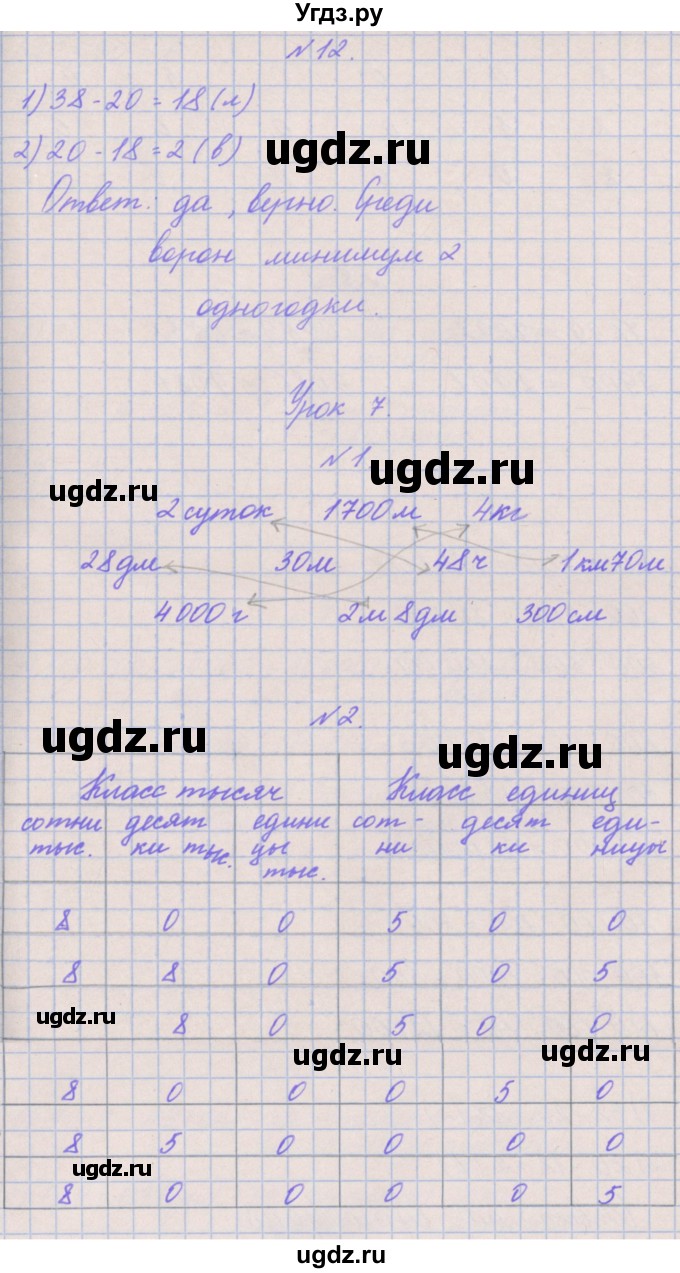 Угдз.ру
№12.
1) 38 - 20 = 18 (л)
2) 20 - 18 = 2 (в)
ugdz.ru
Ответ: да, верно. Среди
ворон минимум 2
одногодки.
Урок 7.
№1
ugdz.ru
ugdz.ru
2 суток 1700м 4кг
28дм 30м 48ч 1км70м
4000г 2м 8дм 300см
№2.
ugdz.ru
ugdz.ru
Класс тысяч Класс единиц
сотни десят едини сот- десят еди-
тыс. ки тыс. цы ни ки ницы
тыс.
8 0 0 5 0 0
8 8 0 5 0 5
ugdz.ru 8 0 5 0 0
ugdz.ru ugdz.ru
8 0 0 0 5 0
8 5 0 0 0 0
ugdz.ru
8 0 0 0 0 5
ugdz.ru